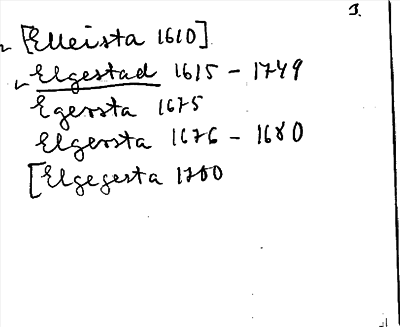 3.
[Elleista 1610]
Elgestad 1615 - 1749
Egersta 1675
Elgersta 1676 - 1680
[Elgegersta 1700